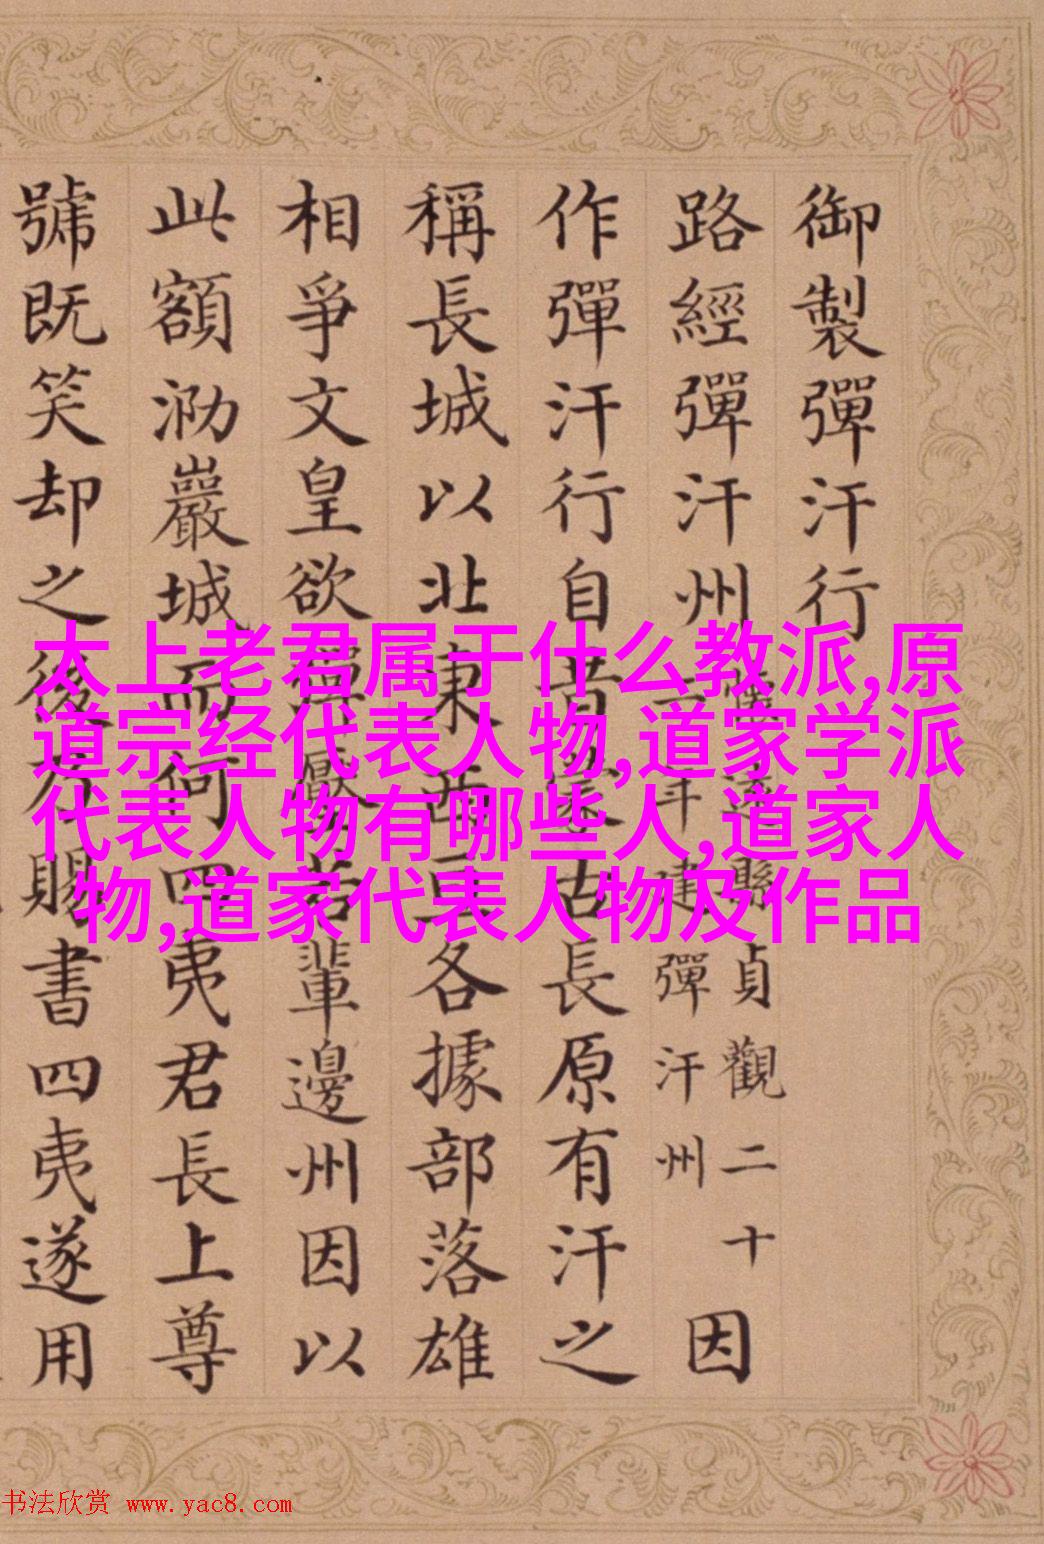 御製彈汗行
路經彈汗州
縣貞觀二十
年建彈汗州
因
作彈汗行自昔古長原有汗之
稱長城以北東西各據部落雄
相爭文皇欲彈壓若輩邊州因以
此額泐巖城而何四夷君長上尊
號既笑却之後乃賜書四夷遂用
太上老君属于什么教派,原
道宗经代表人物,道家学派
代表人物有哪些人,道家人
物,道家代表人物及作品
书法欣赏 www.yac8.com